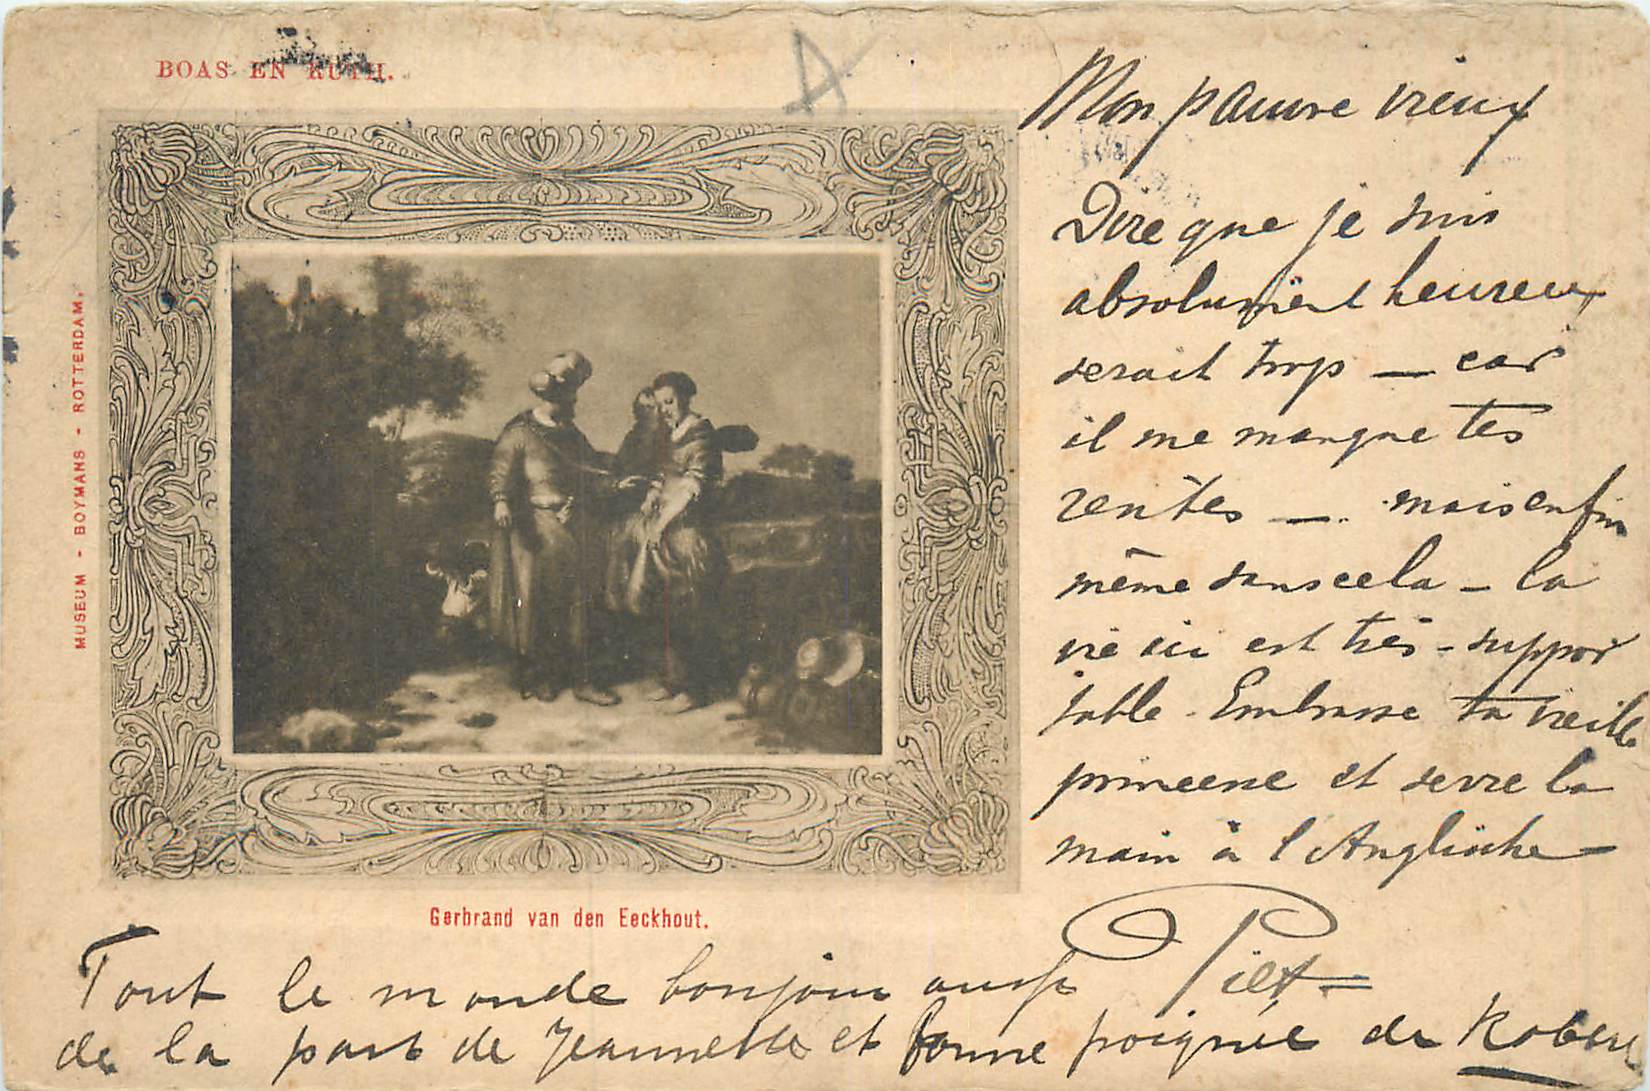 BOAS EN RUTH.
MUSEUM - BOYMANS - ROTTERDAM.
A
Mon pauvre vieux
Dire que je suis
absolument heureux
serait trop — car
il me manque tes
rentes — mais enfin
même sans cela — la
vie ici est très - suppor
table - Embrasse ta vieille
princesse et serre la
main à l'Angliche —
Piet
Gerbrand van den Eeckhout.
Tout le monde bonjour aussi
de la part de Jeannette et bonne poignée de Robert